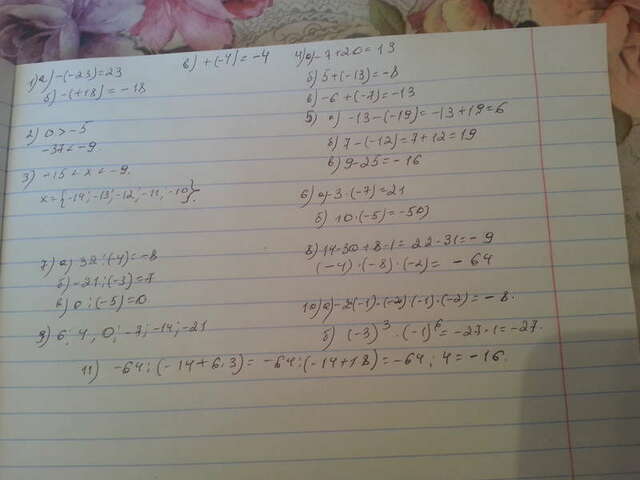 1) а) -(-23)=23
б) -(+18)=-18
в) +(-4)=-4
2) 0>-5
-37<-9.
3) -15<x<-9.
x={-14;-13;-12;-11;-10}.
4) а) -7+20=13
б) 5+(-13)=-8
в) -6+(-7)=-13
5) а) -13-(-19)=-13+19=6
б) 7-(-12)=7+12=19
в) 9-25=-16
6) а) -3·(-7)=21
б) 10·(-5)=-50)
7) а) 32:(-4)=-8
б) -21:(-3)=7
в) 0:(-5)=0
8) 14-30+8-1=22-31=-9
(-4)·(-8)·(-2)=-64
9) 6; 4, 0; -7; -14; -21
10) а) -2(-1)·(-2)(-1)·(-2)=-8.
б) (-3)³·(-1)⁶=-27·1=-27.
11) -64:(-14+6·3)=-64:(-14+18)=-64:4=-16.